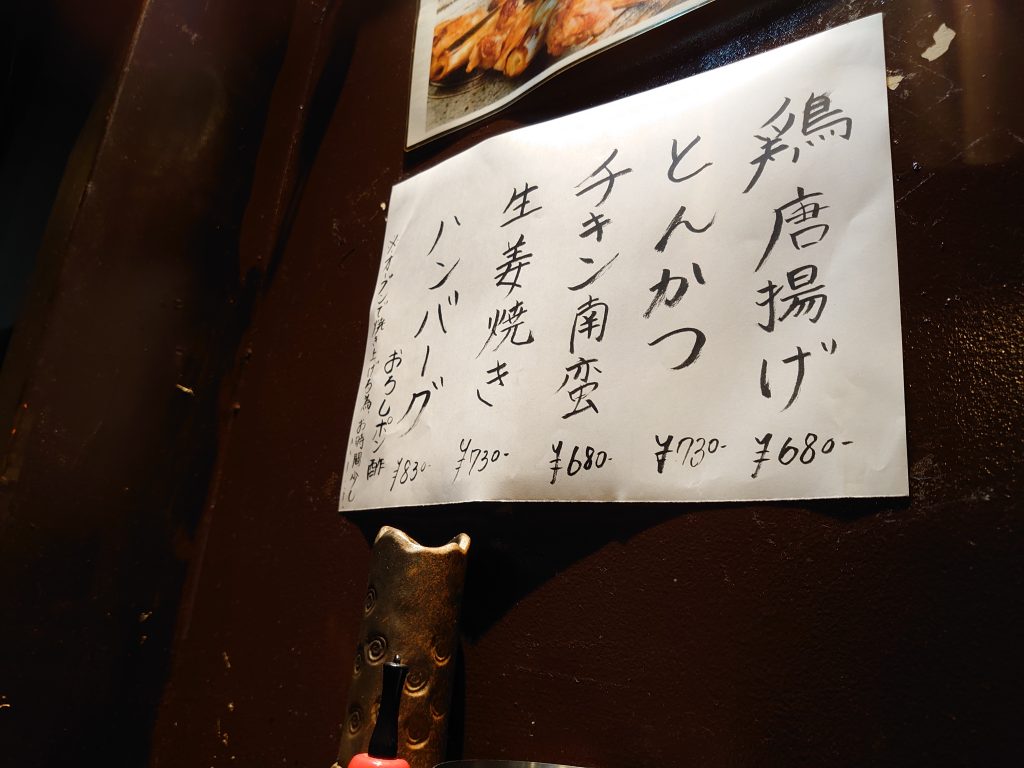 鶏唐揚げ ¥680-
とんかつ ¥730-
チキン南蛮 ¥680-
生姜焼き ¥730-
ハンバーグ ¥830-
おろしポン酢
※オーブンで焼き上げる為 お時間少し